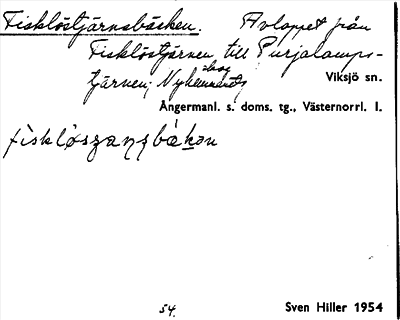 Fisklöstjärnsbäcken. Avloppet från
Fisklöstjärnen till Purjalamps-
tjärnen; Nyhemmanets skog
Viksjö sn.
Ångermanl. s. doms. tg., Västernorrl. l.
54. Sven Hiller 1954